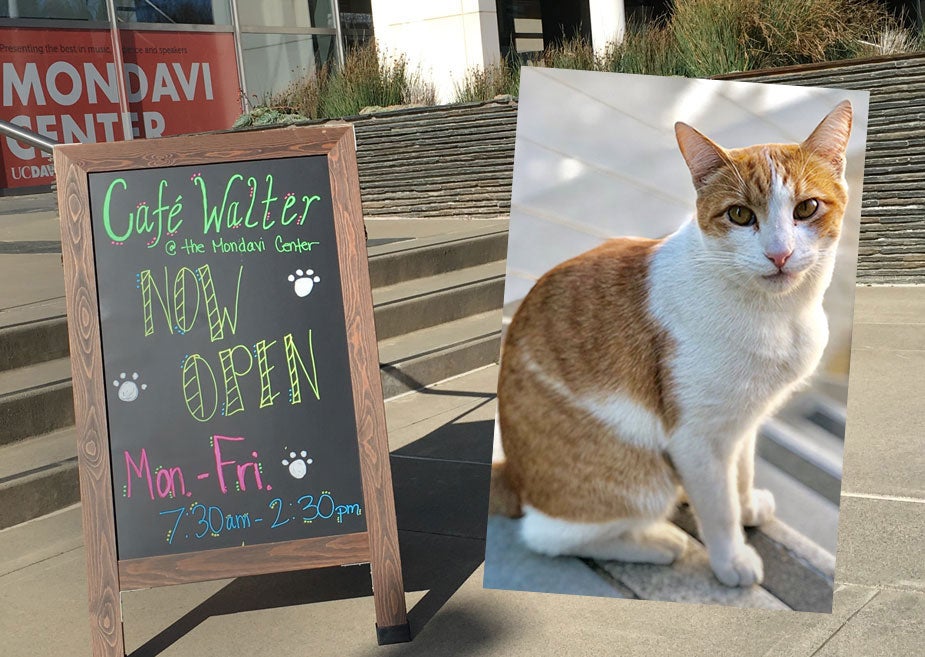 Presenting the best in music, dance and speakers
MONDAVI
CENTER
UCDAV
Café Walter
@ the Mondavi Center
NOW
OPEN
Mon.-Fri.
7:30am-2:30pm